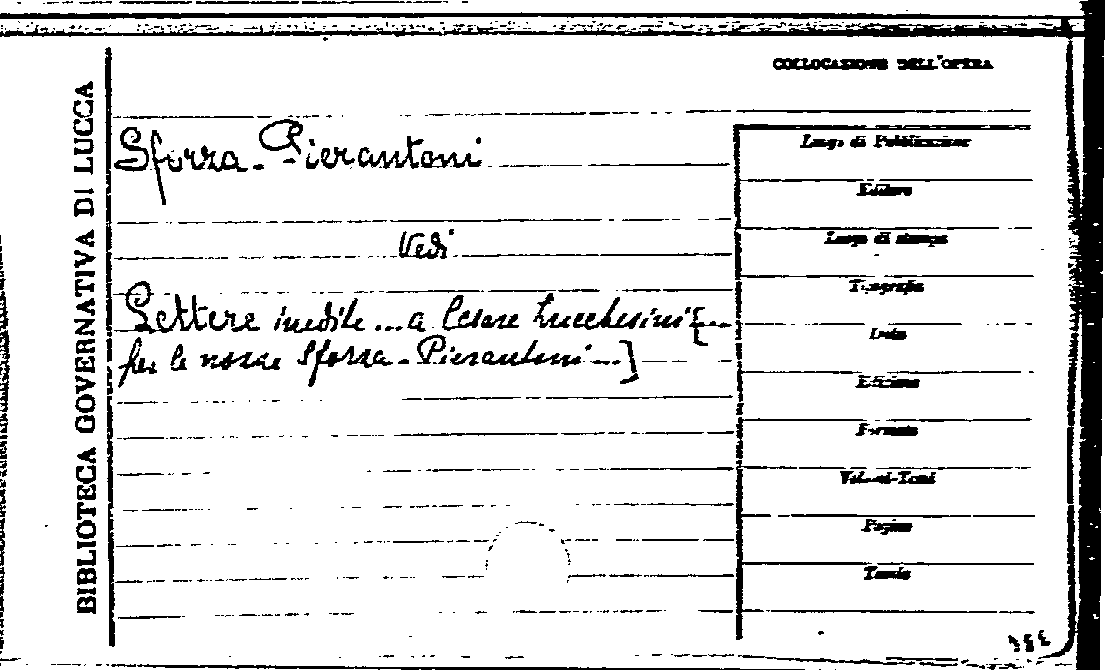 BIBLIOTECA GOVERNATIVA DI LUCCA
COLLOCAZIONE DELL'OPERA
Sforza-Pierantoni
Vedi
Lettere inedite... a Cesare Lucchesini [...
per le nozze Sforza-Pierantoni...]
Luogo di Pubblicazione
Editore
Luogo di stampa
Tipografia
Data
Edizione
Formato
Volumi-Tomi
Pagine
Tavole